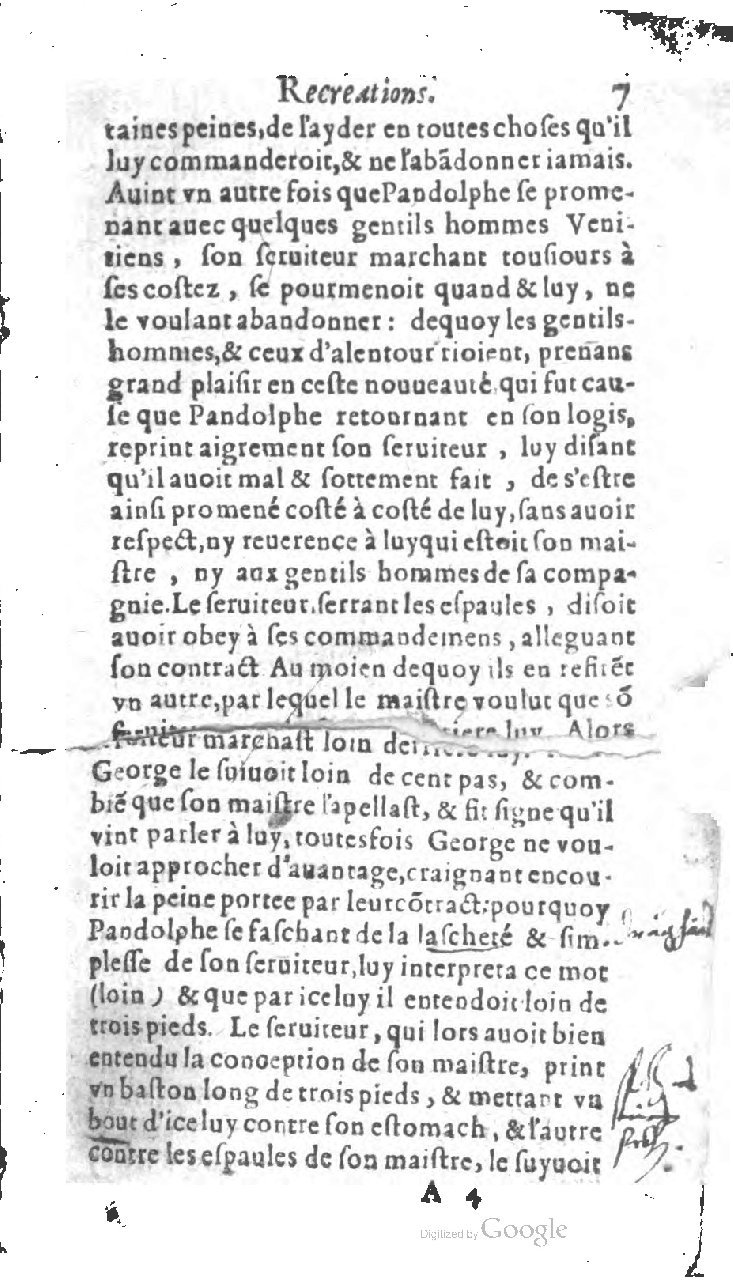 Recreations. 7
taines peines, de l'ayder en toutes choſes qu'il
luy commanderoit, & ne l'abādonner iamais.
Auint vn autre fois que Pandolphe ſe prome-
nant auec quelques gentils hommes Veni-
tiens, ſon ſeruiteur marchant touſiours à
ſes coſtez, ſe pourmenoit quand & luy, ne
le voulant abandonner: dequoy les gentils-
hommes, & ceux d'alentour rioient, prenans
grand plaiſir en ceſte nouueauté qui fut cau-
ſe que Pandolphe retournant en ſon logis,
reprint aigrement ſon ſeruiteur, luy diſant
qu'il auoit mal & ſottement fait, de s'eſtre
ainſi promené coſté à coſté de luy, ſans auoir
reſpect, ny reuerence à luy qui eſtoit ſon mai-
ſtre, ny aux gentils hommes de ſa compa-
gnie. Le ſeruiteur ſerrant les eſpaules, diſoit
auoir obey à ſes commandemens, alleguant
ſon contract Au moien dequoy ils en refirēt
vn autre, par lequel le maiſtre voulut que sō
ſeruiteur marchaſt loin derriere luy. Alors
George le ſuiuoit loin de cent pas, & com-
biē que ſon maiſtre l'apellaſt, & fit ſigne qu'il
vint parler à luy, toutesfois George ne vou-
loit approcher d'auantage, craignant encou-
rir la peine portee par leur cōtract: pourquoy
Pandolphe ſe faſchant de la laſcheté & ſim-
pleſſe de ſon ſeruiteur, luy interpreta ce mot
(loin) & que par iceluy il entendoit loin de
trois pieds. Le ſeruiteur, qui lors auoit bien
entendu la conception de ſon maiſtre, print
vn baſton long de trois pieds, & mettant vn
bout d'iceluy contre ſon eſtomach, & l'autre
contre les eſpaules de ſon maiſtre, le ſuyuoit
A 4
Digitized by Google